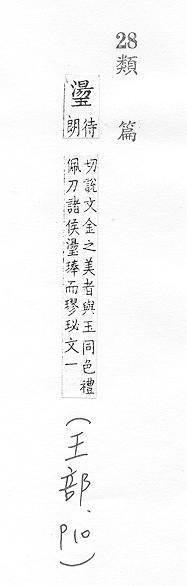 28
類篇
璗
待朗
切說文金之美者與玉同色禮
佩刀諸侯璗琫而璆珌文一
(王部、P10)